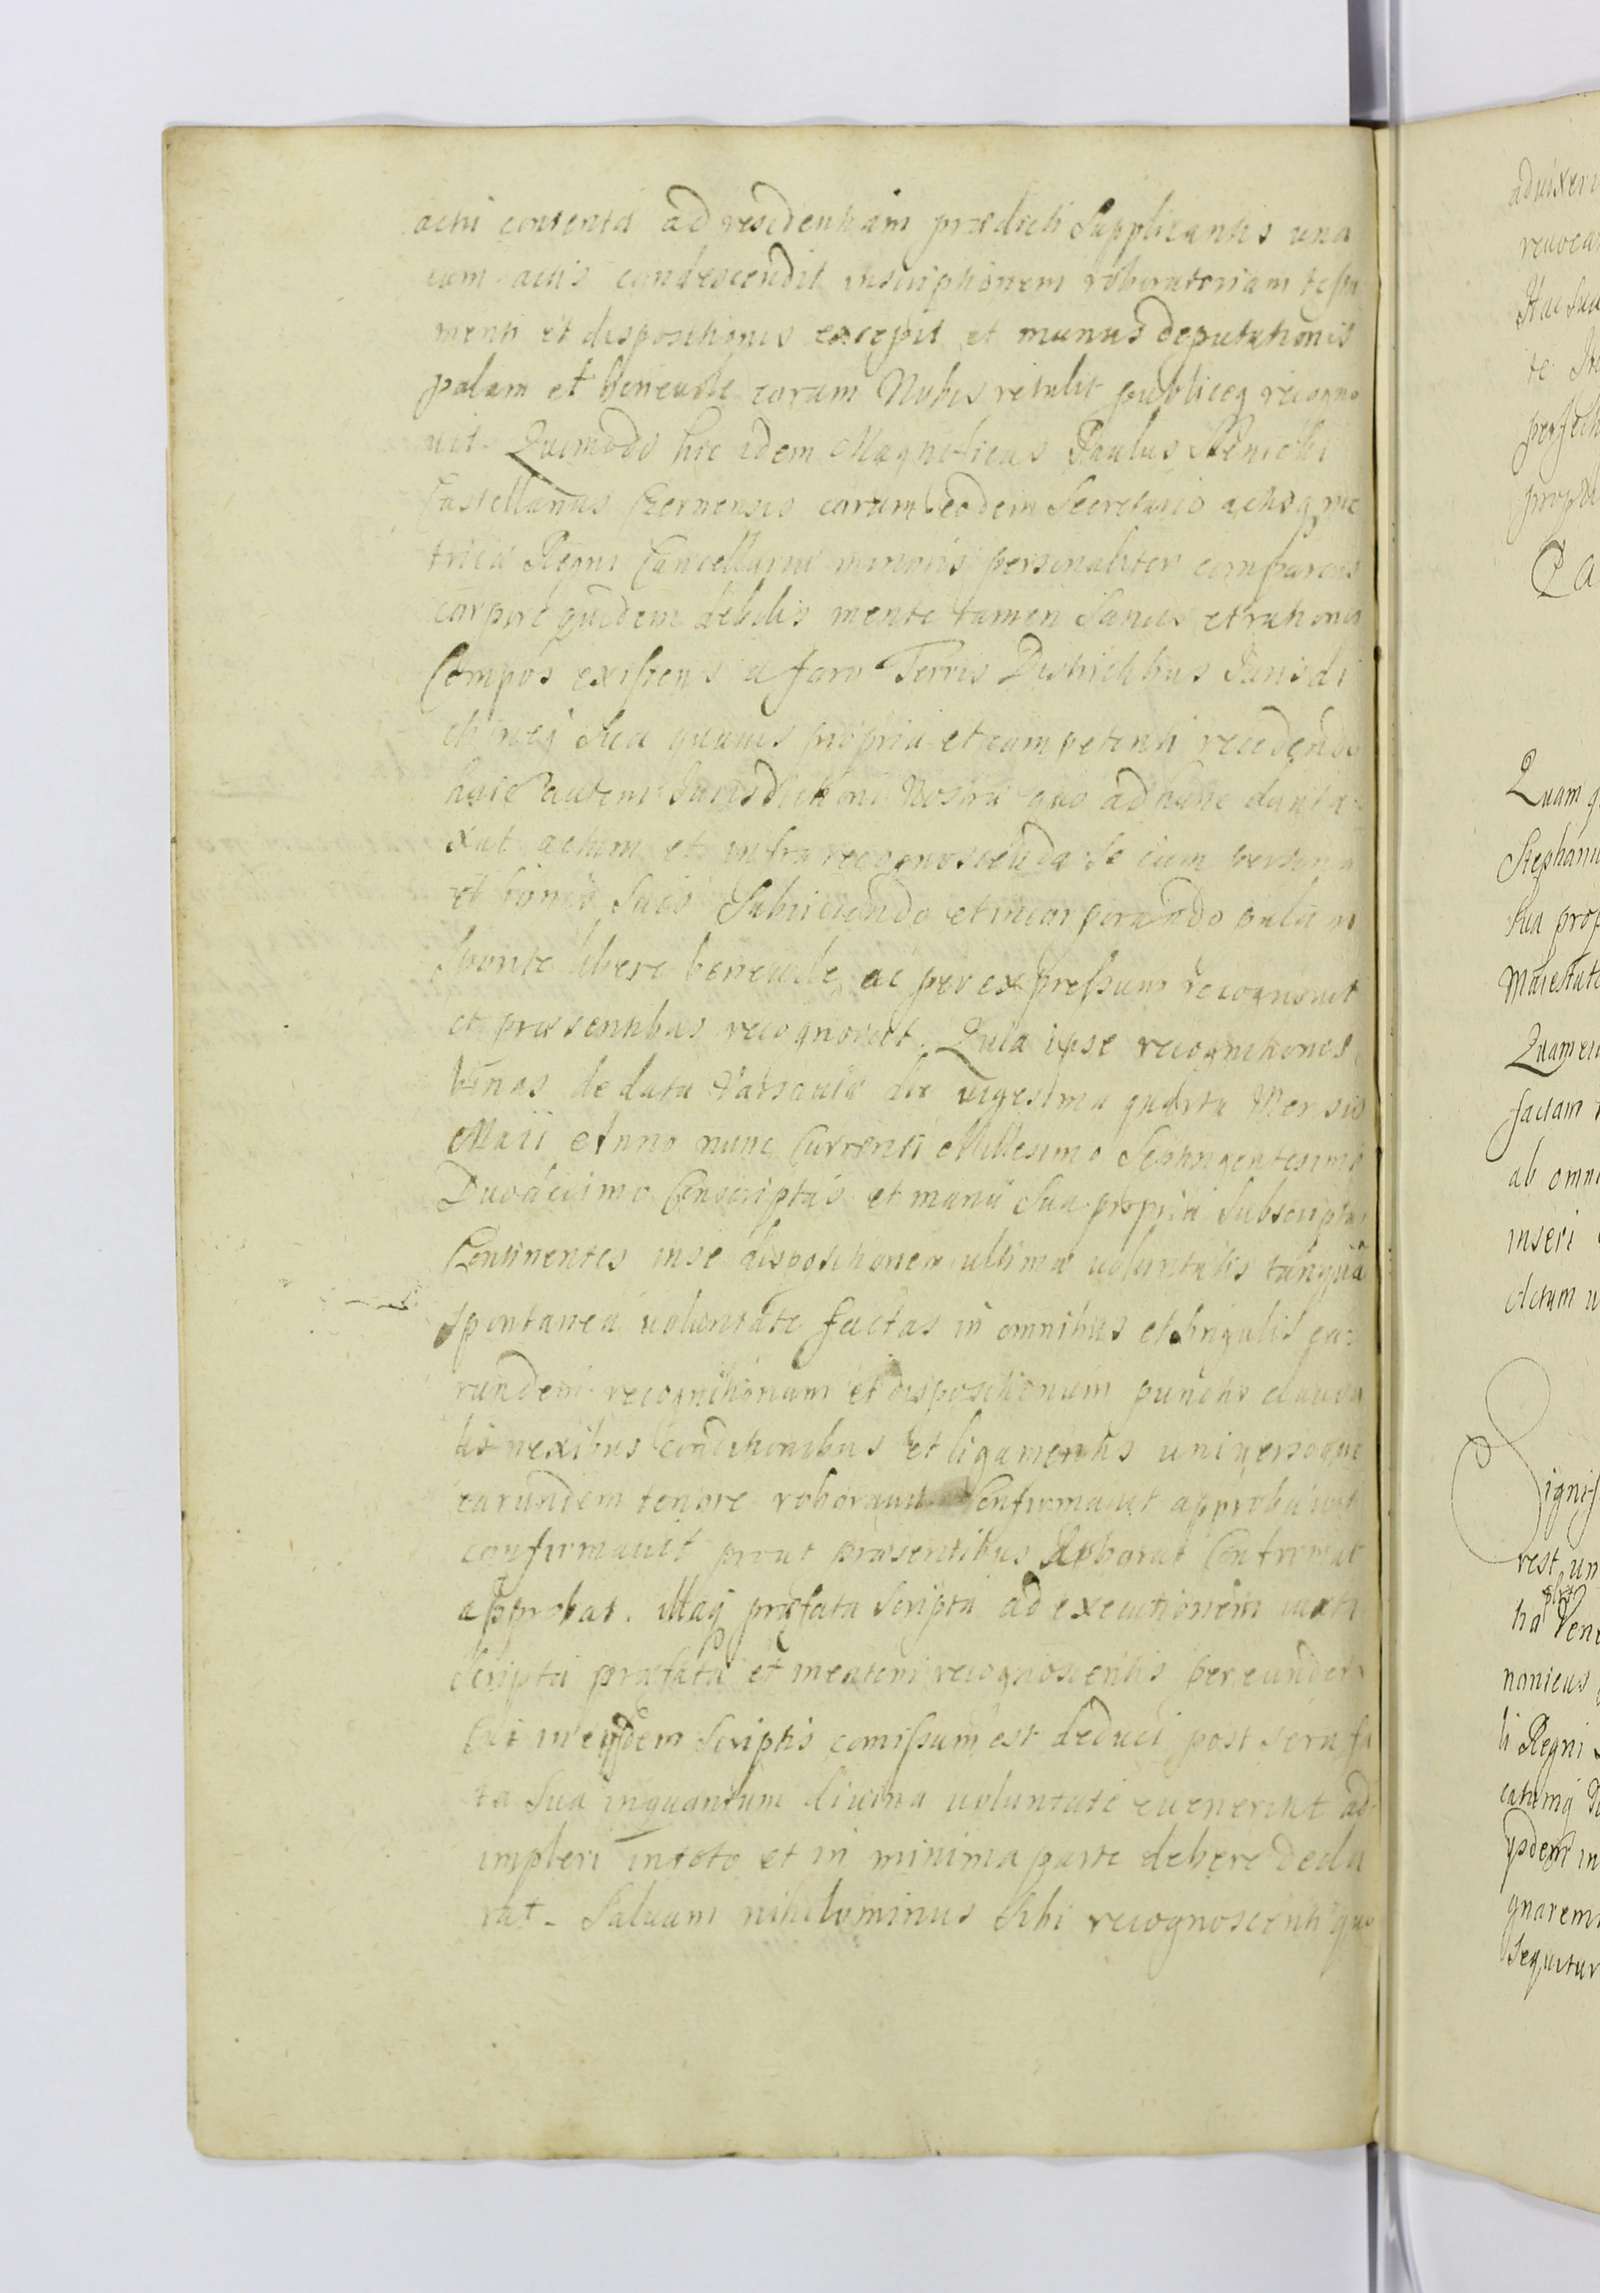 actu contenta ad residentiam prædicti Supplicantis una
cum actis condescendit inscriptionem roboratoriam testa
menti et dispositionis excepit et munus deputationis
palam et benevole coram Nobis retulit publiceq recogno
uit. Quomodo hic idem Magnificus Paulus
Castellanus coram eodem Secretario actisq me
trices Regni Cancellariæ minoris personaliter comparens
corpore quidem debilis mente tamen Sanus et rationis
Compos existens a foro Terris Districtibus Jurisdi
ctioneq Sua quauis propria et competenti recedendo
huic autem Jurisdictioni Nostræ quo ad hunc dunta
xat actum et infra recognoscenda Se cum persona
et bonis Suis Subiiciendo et incorporando palam
Sponte libere beneuole ac per expressum recognouit
et præsentibus recognoscit. Quia ipse recognitiones
binas de data Varsauiæ die uigesima quarta Mensis
Maii Anno nunc Currenti Millesimo Septingentesimo
Duodecimo Conscriptas et manu Sua propria Subscriptas
Continentes in se dispositionem ultimæ uoluntatis tanquã
Spontanea uoluntate factas in omnibus et Singulis ea
rundem recognitionum et dispositionum punctis clausu
lis nexibus Conditionibus et ligamentis uniuersoque
earundem tenore roborauit Confirmauit approbauit
confirmauit prout præsentibus Roborat Confirmat
approbat. illaq præfata Scripta ad executionem iuxta
Scripta præfata et mentem recognoscentis per eundem
Cui in eisdem Scriptis comissum est deduci post Sera fa
ta Sua inquantum diuina uoluntate euenerint ad
impleri in toto et in minima parte debere decla
rat. Saluam nihilominus Sibi recognoscenti
aduixeri
reuocan
te
perfect
Quam q
Stephanu
Sua prop
Maiestate
Quam eu
factam
ab omni
inseri
Actum u
ignif
rest un
nonicus
li Regni
gnarem
Sequitur